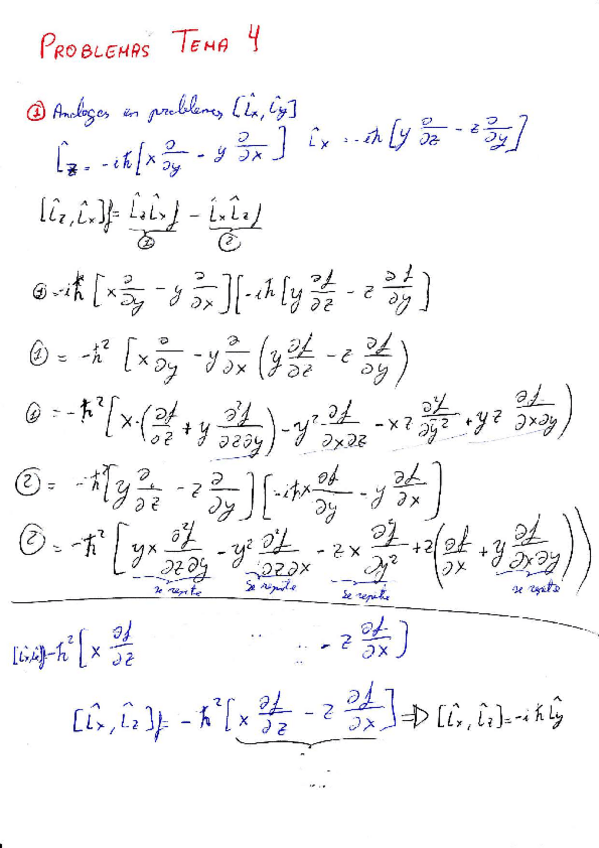 PROBLEMAS TEMA 4
① Analogos en problemas [L̂x, L̂y]
L̂z = -iħ[x ∂/∂y - y ∂/∂x] L̂x = -iħ[y ∂/∂z - z ∂/∂y]
[L̂z, L̂x]f = L̂zL̂xf - L̂xL̂zf
① ②
① = -iħ [x ∂/∂y - y ∂/∂x][-iħ[y ∂f/∂z - z ∂f/∂y]
① = -ħ² [x ∂/∂y - y ∂/∂x (y ∂f/∂z - z ∂f/∂y)
① = -ħ² [x·(∂f/∂z + y ∂²f/∂z∂y) - y² ∂f/∂x∂z - xz ∂²f/∂y² + yz ∂f/∂x∂y)
② = -ħ²[y ∂/∂z - z ∂/∂y][-iħx ∂f/∂y - y ∂f/∂x]
② = -ħ² [yx ∂²f/∂z∂y - y² ∂²f/∂z∂x - zx ∂²f/∂y² + z(∂f/∂x + y ∂f/∂x∂y))
se repite se repite se repite se repite
-ħ² [x ∂f/∂z .. .. - z ∂f/∂x]
[L̂x, L̂z]f = -ħ² [x ∂f/∂z - z ∂f/∂x] ⇒ [L̂x, L̂z] = -iħL̂y